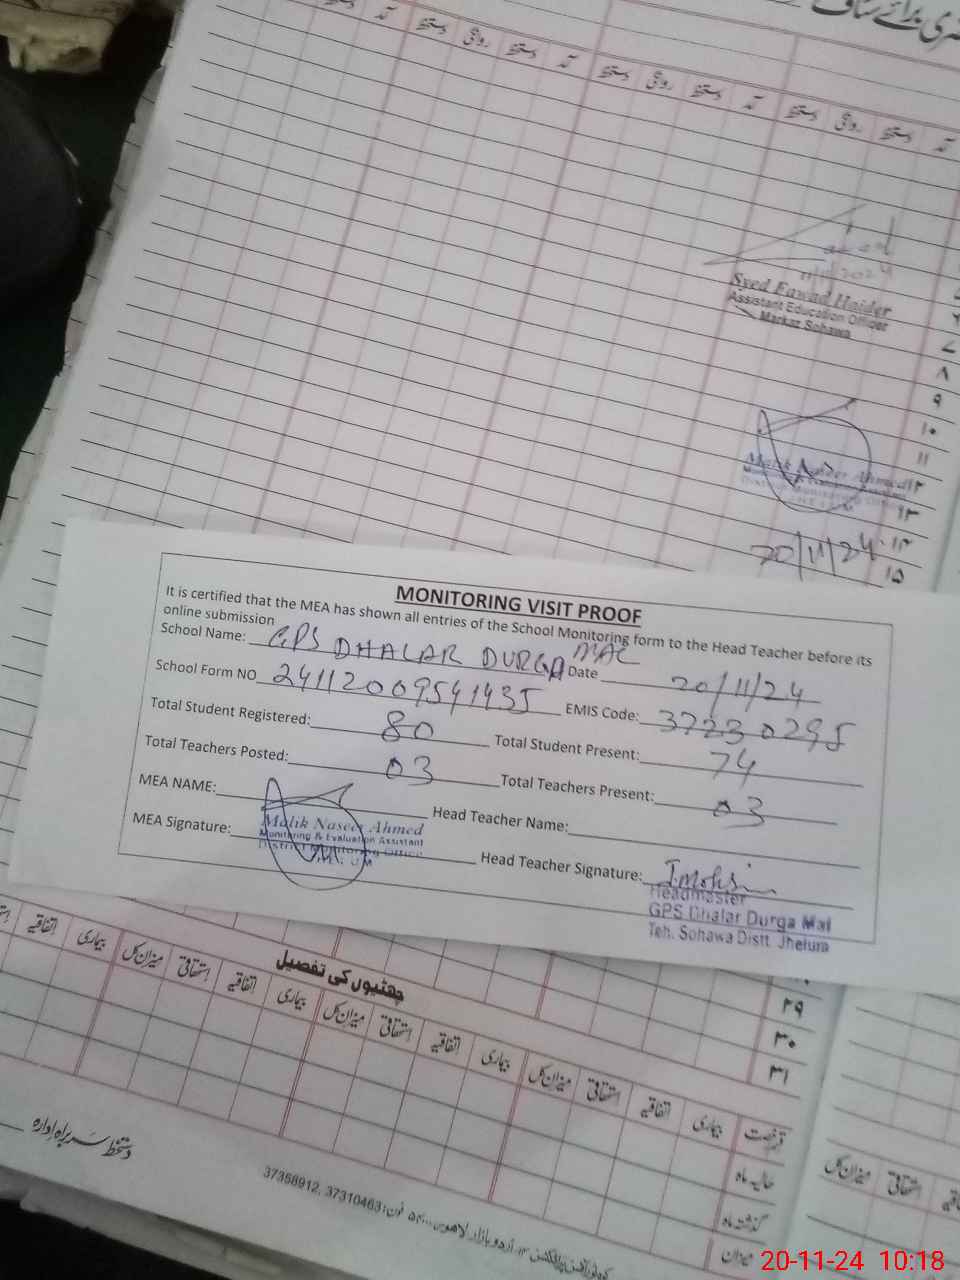 آمد دستخط روانگی دستخط آمد دستخط روانگی دستخط آمد دستخط روانگی دستخط آمد
11/2024
Syed Fawad Haider
Assistant Education Officer
Markaz Sohawa
۷
۸
۹
۱۰
۱۱
۱۲
Malik Naseer Ahmed
Monitoring & Evaluation Assistant
District Monitoring Office
۱۳
۱۴
20/11/24
۱۵
MONITORING VISIT PROOF
It is certified that the MEA has shown all entries of the School Monitoring form to the Head Teacher before its
online submission
School Name: GPS DHALAR DURGA MAL Date 20/11/24
School Form NO 24112009541435 EMIS Code: 37230295
Total Student Registered: 80 Total Student Present: 74
Total Teachers Posted: 03 Total Teachers Present: 03
MEA NAME: Head Teacher Name:
Malik Naseer Ahmed
Monitoring & Evaluation Assistant
District Monitoring Office
MEA Signature: Head Teacher Signature:
Headmaster
GPS Dhalar Durga Mal
Teh. Sohawa Distt. Jhelum
۲۹
۳۰
۳۱
چھٹیوں کی تفصیل
قسم رخصت بیماری اتفاقیہ استحقاقی میزان کل بیماری اتفاقیہ استحقاقی میزان کل بیماری اتفاقیہ استحقاقی میزان کل بیماری اتفاقیہ
حالیہ ماہ
گذشتہ ماہ
میزان
میزان کل استحقاقی
دستخط سربراہ ادارہ
اردو بازار لاہور فون: 37310463, 37358912
20-11-24 10:18